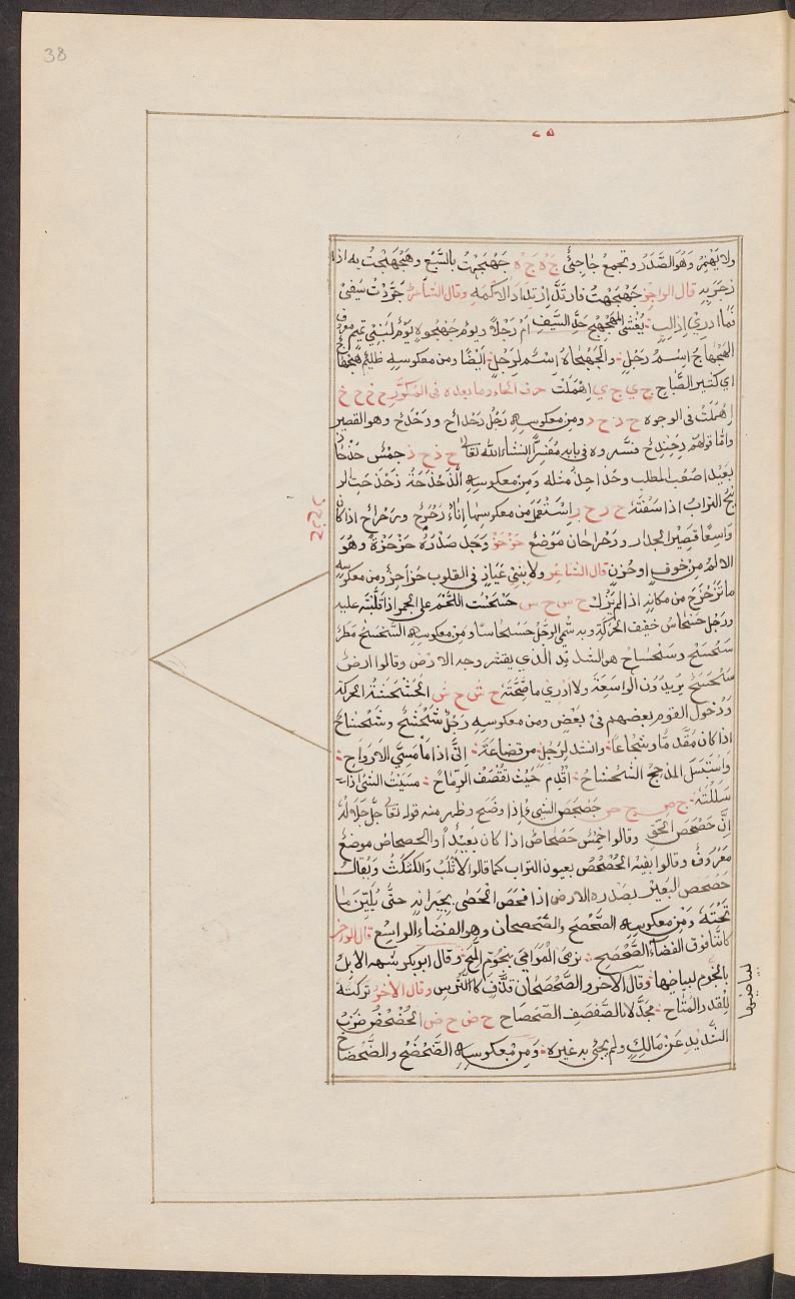 38
ولا يهمز وهو الصَّدر وتجمع جآجئُ ج ه ج ه جَهْجَهْتُ بالسَّبُع وهَجْهَجْتُ به اذا
زجرته قال الراجز جَهْجَهْتُ فارتَدَّ ارتداد الاكمه وقال الشاعر جَرَّدْتُ سَيفي
فما ادري اذا لبدٍ يُغْشى المُهَجْهَجَ حَدُّ السَّيف ام رَجُلاً ويوم جُهْجُوهٍ يوم لبني تميم معروف
الهَجْهاجُ اسم رجل والجَهْجاهُ اسم لرجل ايضا ومن معكوسه ظليم هجهاج
اي كثير الصياح ج ي ج ي اهملت حرف الحاء وما بعده في المكرّر ح خ ح خ
اهملت في الوجوه ح د ح د ومن معكوسه رَجُل دَحْداح ودَحْدَح وهو القصير
واما قولهم دِحِنْدِح فستراه في بابه مفسراً ان شاء الله تعالى ح ذ ح ذ خِمْس حَذْحاذ
بعيد اصعب المطلب وحُذاحِذٌ مثله ومن معكوسه الذَّحْذَحَة ذَحْذَحت الر
يح التراب اذا سَفَتْهُ ح ر ح ر استُعمل من معكوسها اناءٌ رَحْرَحٌ ورَحْراحٌ اذا كان
واسعًا قصير الجدار ورَحْرَحان موضع حَزْحَزْ وَجَد صدره حَزْحَزَةً وهو
الالم من خوفٍ او حُزن قال الشاعر ولابني عَيّاذٍ في القلوب حَزاحِزُ ومن معكوسه
ما تَزَحْزَحَ من مكانه اذا لم يَزُل ح س ح س حَسْحَسْتُ اللحم على الجمر اذا قلّبته عليه
ورجل حَسْحاس خفيف الحركة وبه سُمّي الرجل حَسْحاسا ومن معكوسه السَّحْسَح مطر
سَحْسَحٌ وسَحْساح هو الشديد الذي يقشر وجه الارض وقالوا ارض
سَحْسَحٌ يريدون الواسعة ولا ادري ما صحته ح ش ح ش الحَشْحَشَةُ الحركة
ودخول القوم بعضهم في بعض ومن معكوسه رجل شَحْشَحٌ وشَحْشاحٌ
اذا كان مقدما وشجاعاً وانشد لرجل من قضاعة
واستبسل المدجج الشَّحْشاحُ اقدم حيث تقصف الرماح
سللته ح ص ح ص حَصْحَصَ الشيء اذا وضح وظهر منه قوله تعالى جل جلاله
حَصْحَصَ الحق وقالوا خِمس حَصْحاصٌ اذا كان بعيداً والحصحاص موضع
معروف وقالوا بفيه الحِصْحِصُ يعنون التراب كما قالوا الاثلب والكثكث ويقال
حَصْحَصَ البعير بصدره الارض اذا فحص الحصى بجرانه حتى يليّن ما
تحته ومن معكوسه الصَّحْصَح والصَّحْصحان وهو الفضاء الواسع قال الراجز
كأنّنا فوق الفضاء الصَّحْصَحِ نرمي الموامي بنجوم لُمّحِ وقال ابو بكر شبه الابل
بالنجوم لبياضها وقال الآخر والصَّحْصَحان قذف كالترس وقال الآخر تركته
للقدر المتاح مجدّلا بالصفصف الصحصاح ح ض ح ض الحُضْحُضُ ضرب
الشديد عن مالك ولم يجئ به غيره ومن معكوسه الضَّحْضَح والضَّحْضاح
لبياضها